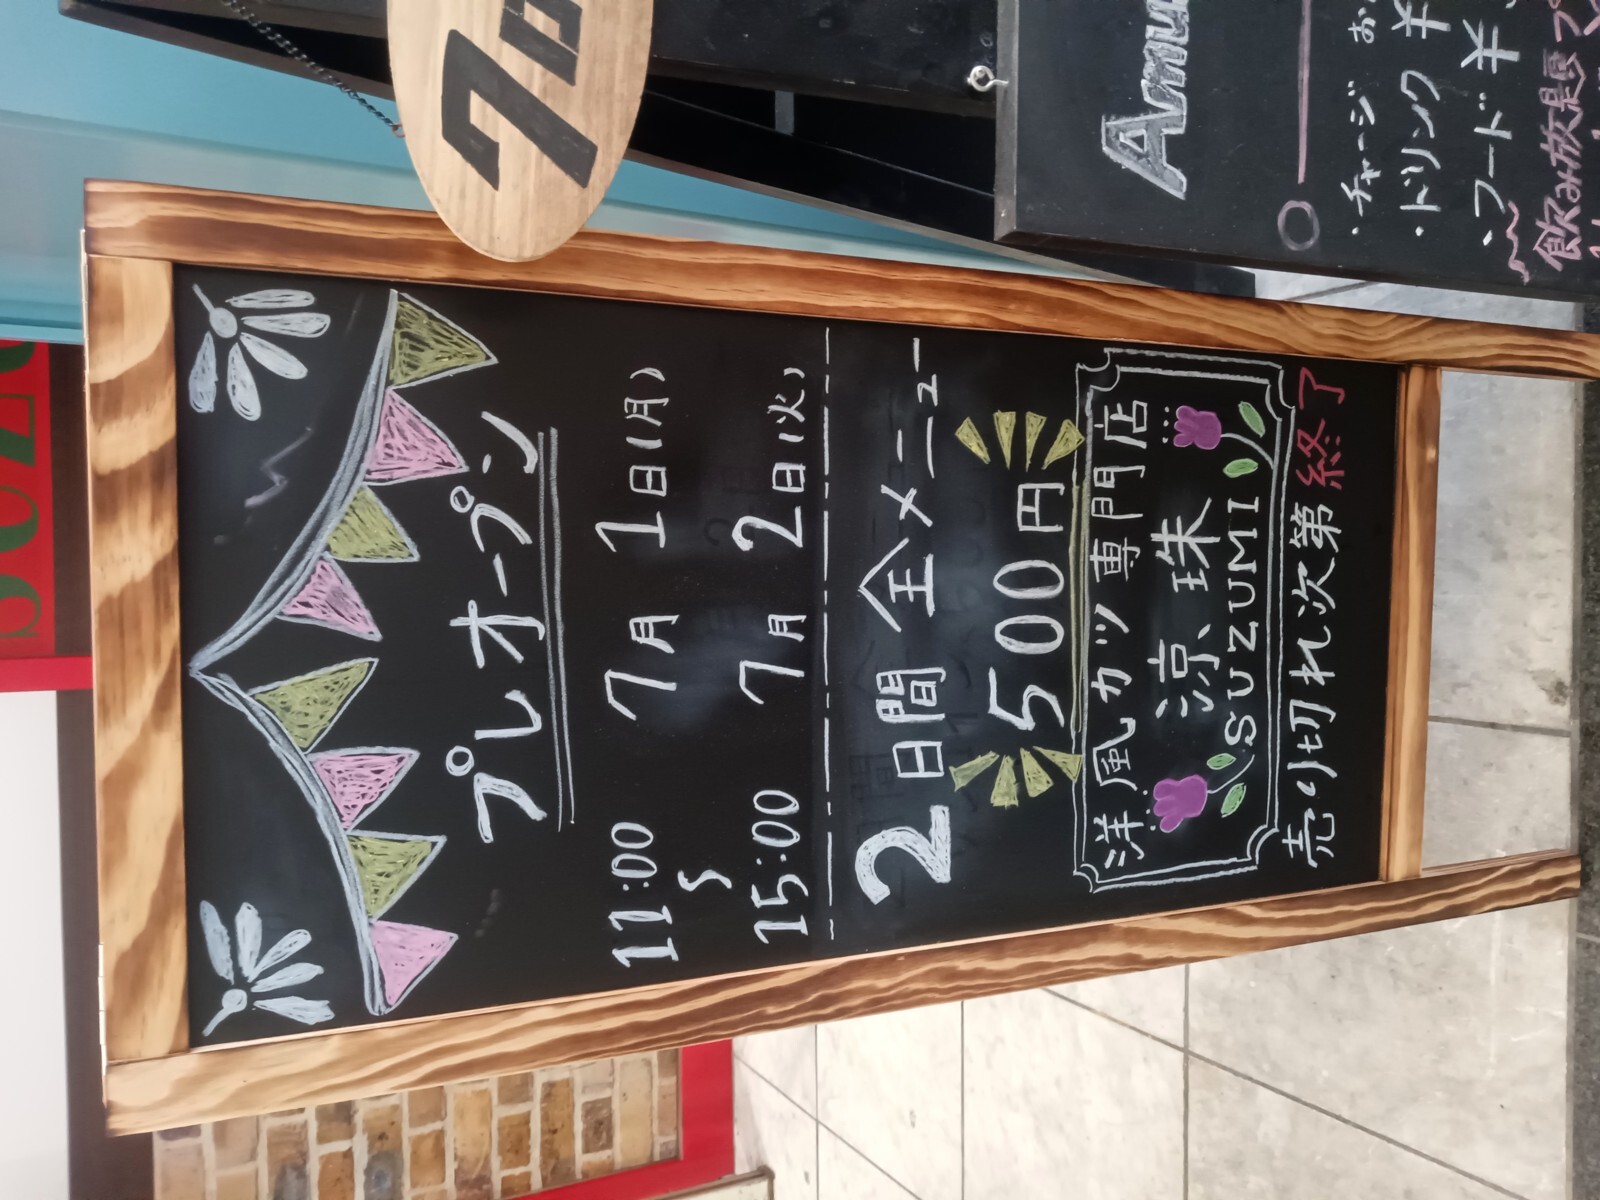 プレオープン
11:00 7月1日(月)
〜
15:00 7月2日(火)
2日間 全メニュー
500円
洋風カツ専門店
涼珠
SUZUMI
売り切れ次第終了
Amu
・チャージ
・ドリンク ¥
・フード ¥
飲み放題